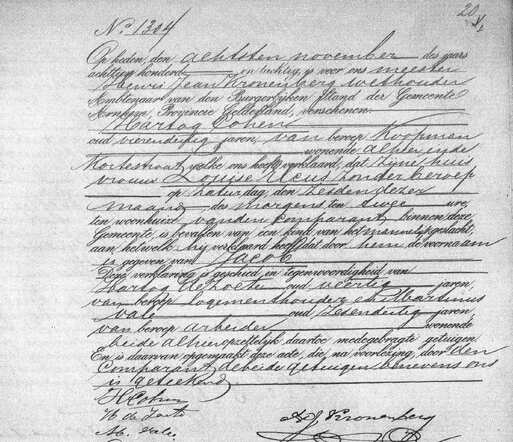 No. 1304
20
Op heden, den achtsten november des jaars
achttien honderd en tachtig is voor ons meester
Henri Jean Kronenberg wethouder
Ambtenaar van den Burgerlijken Stand der Gemeente
Arnhem, Provincie Gelderland, verschenen:
Hartog Cohen
oud vierendertig jaren, van beroep Koopman
wonende alhier in de
Kortestraat welke ons heeft verklaard, dat zijne huis
vrouw Louise zonder beroep
op Zaturdag, den zesden dezer
maand des morgens ten twee ure,
ten woonhuize van den Comparant binnen deze
Gemeente, is bevallen van een kind van het mannelijk geslacht,
aan hetwelk hij verklaard heeft dat door hem de voornaam
is gegeven van Jacob
Deze verklaring is geschied in tegenwoordigheid van
Hartog de Zoete oud veertig jaren,
van beroep logementhouder en Martinus
Vale oud zesendertig jaren,
van beroep arbeider wonende
beide alhier opzettelijk daartoe medegebragte getuigen
En is daarvan opgemaakt deze acte, die, na voorlezing, door den
Comparant de beide getuigen benevens ons
is geteekend
H Cohen
H de Zoete
M. Vale.
Kronenberg